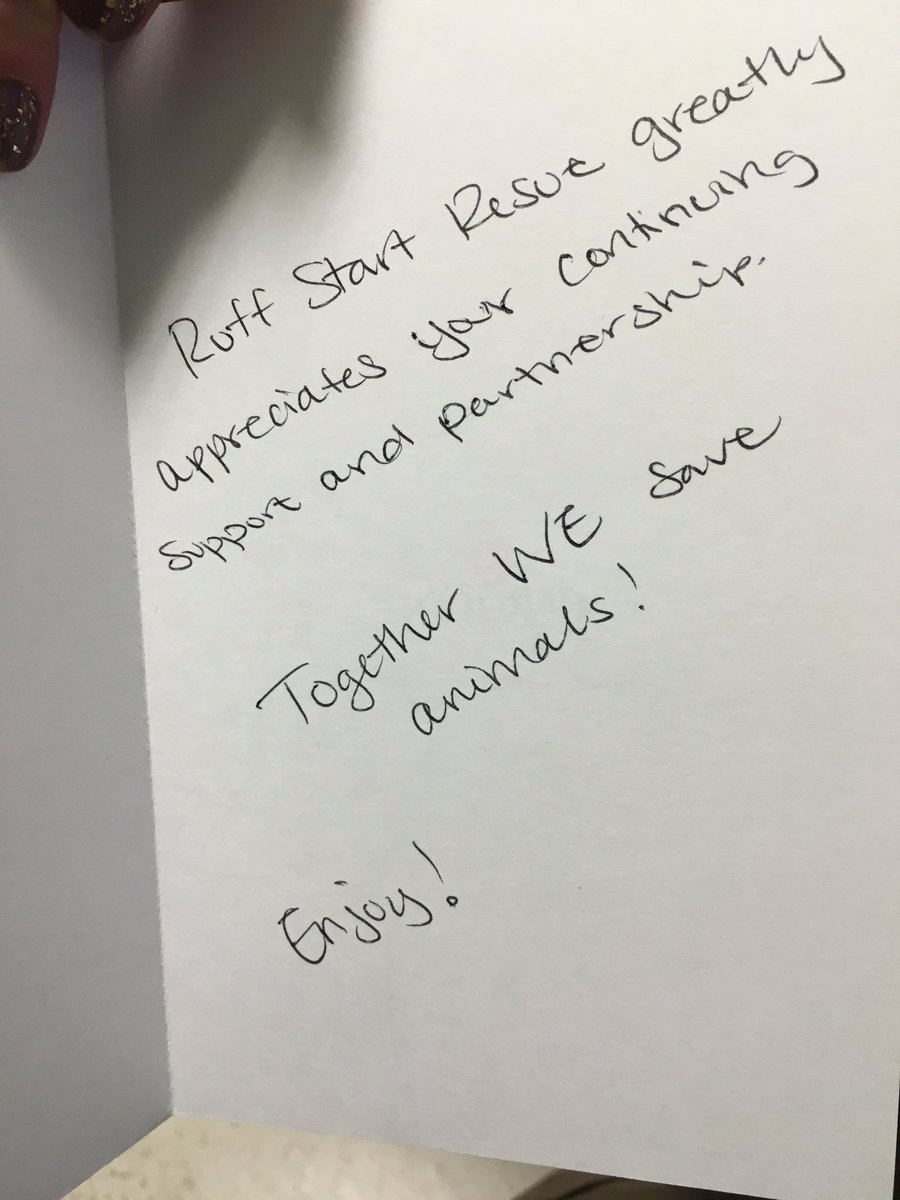 Ruff Start Resue greatly
appreciates your continuing
support and partnership.
Together WE save
animals!
Enjoy!